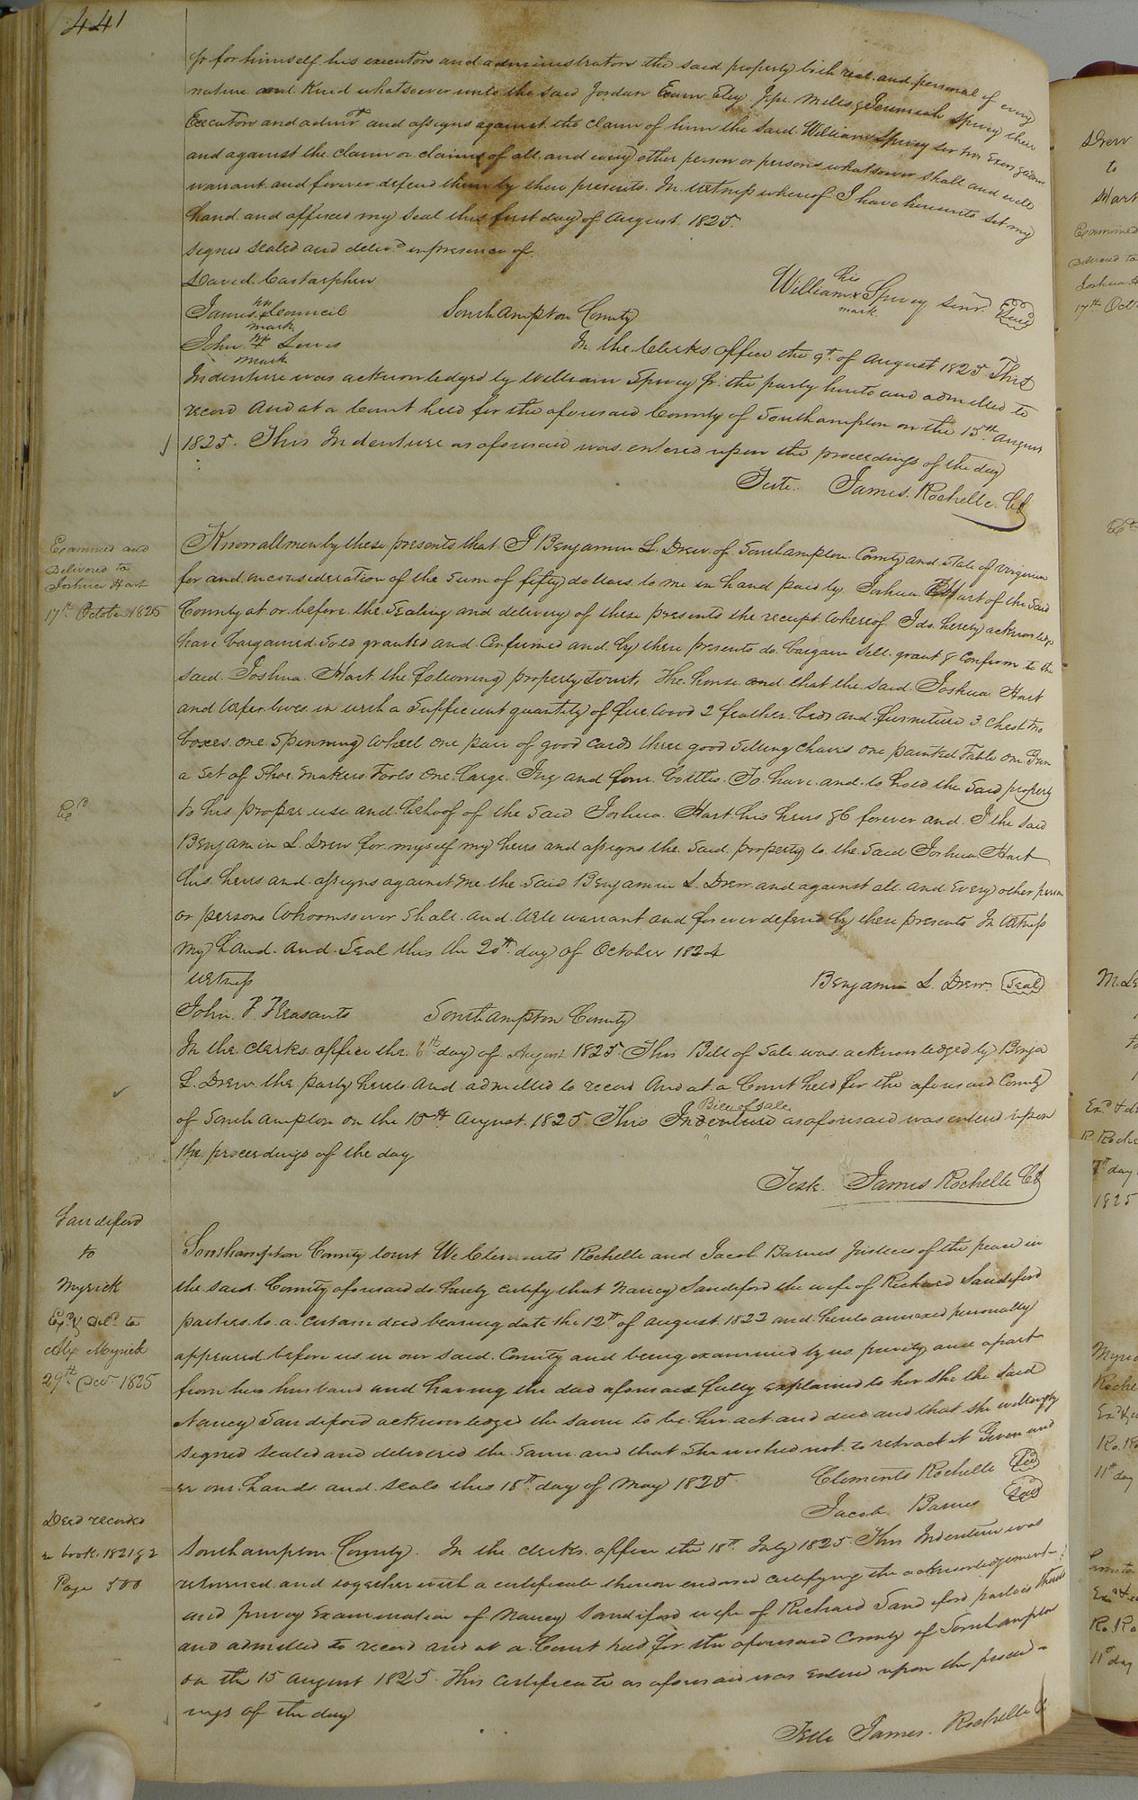 441
for himself his executors and administrators the said property both real and personal of every
nature and kind whatsoever unto the said Jordan Exum Eley Jepe Miles & Jeremiah Spivey their
Executors and admrs and assigns against the claim of him the said William Spivey senr his Exors
and against the claim or claims of all and every other person or persons whatsoever shall and will
warrant and forever defend them by these presents. In witness whereof I have hereunto set my
hand and affixed my seal this first day of August 1825.
Signed sealed and delivd in presence of
David Castarphen
William his x mark Spivey senr Seal
James his x mark Council
Southampton County
John his x mark Lewis
In the Clerks office the 9th of August 1825 This
Indenture was acknowledged by William Spivey Sr. the party hereto and admitted to
record And at a Court held for the aforesaid County of Southampton on the 15th August
1825. This Indenture as aforesaid was entered upon the proceedings of the day
Teste. James Rochelle Clk
Examined and
Delivered to
Joshua Hart
17th October 1825
Know all men by these presents that I Benjamin L Drew of Southampton County and State of Virginia
for and in consideration of the sum of fifty dollars to me in hand paid by Joshua Hart of the said
County at or before the sealing and delivery of these presents the receipt whereof I do hereby acknowledge
have bargained sold granted and confirmed and by these presents do bargain sell grant & confirm to the
said Joshua Hart the following property towit, The house and that the said Joshua Hart
and wife lives in with a sufficient quantity of fire wood 2 feather beds and furniture 3 chest two
boxes one spinning wheel one pair of good cards three good setting chairs one painted Table one Gun
a set of Shoe makers Tools one large Jug and four bottles. To have and to hold the said property
to his proper use and behoof of the said Joshua Hart his heirs &c forever and I the said
Benjamin L Drew for myself my heirs and assigns the said property to the said Joshua Hart
his heirs and assigns against me the said Benjamin L. Drew and against all and every other person
or persons whomsoever shall and will warrant and forever defend by these presents In witness
my hand and seal this the 20th day of October 1824
witness
Benjamin L. Drew Seal
John P Pleasants
Southampton County
In the clerks office the 6th day of August 1825 This Bill of Sale was acknowledged by Benja
L. Drew the party hereto and admitted to record And at a Court held for the aforesaid County
of Southampton on the 15th August 1825 This Indenture Bill of Sale as aforesaid was entered upon
the proceedings of the day
Teste. James Rochelle Clk
Sandiford
to
Myrick
Exd & Deld to
Alx Myrick
29th Decr 1825
Southampton County Court We Clements Rochelle and Jacob Barnes Justices of the peace in
the said County aforesaid do hereby certify that Nancy Sandiford the wife of Richard Sandiford
parties to a certain deed bearing date the 12th of August 1822 and hereto annexed personally
appeared before us in our said County and being examined by us privily and apart
from her husband and having the deed aforesaid fully explained to her she the said
Nancy Sandiford acknowledged the same to be her act and deed and that she willingly
signed sealed and delivered the same and that she wished not to retract it Given und
er our hands and seals this 18th day of May 1825
Clements Rochelle Seal
Jacob Barnes Seal
Deed recorded
in book 1821 & 2
Page 500
Southampton County. In the clerks office the 18th July 1825 This Indenture was
returned and together with a certificate thereon endorsed certifying the acknowledgement
and privy Examination of Nancy Sandiford wife of Richard Sandiford parties thereto
and admitted to record and at a Court held for the aforesaid County of Southampton
on the 15 August 1825 This certificate as aforesaid was entered upon the proceed-
ings of the day
Teste James Rochelle C
Drew
to
Hart
Examined
Delivered to
Joshua H
17th Octo